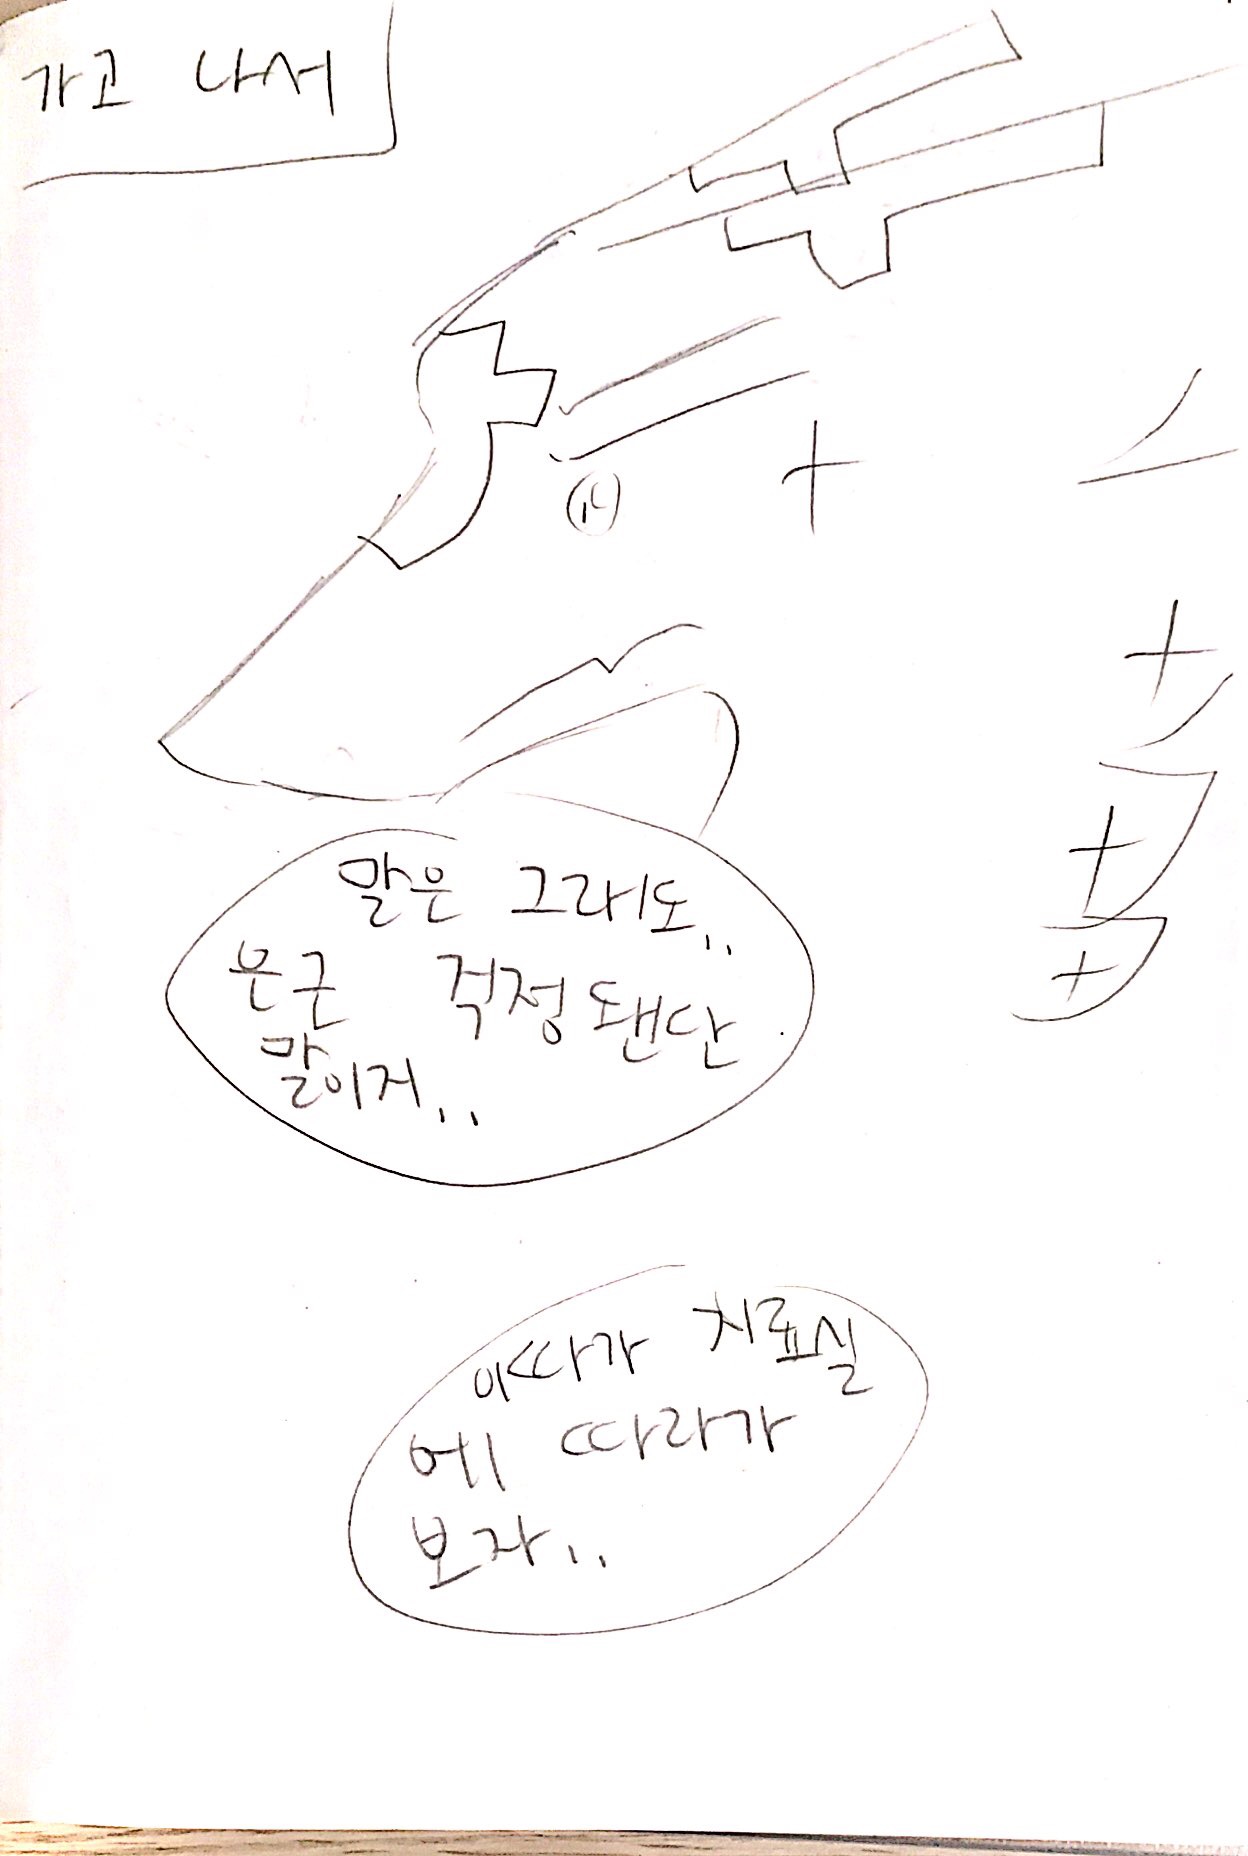 가고 나서
말은 그래도..
은근 걱정됀단
말이지..
이따가 치료실
에 따라가
보자..